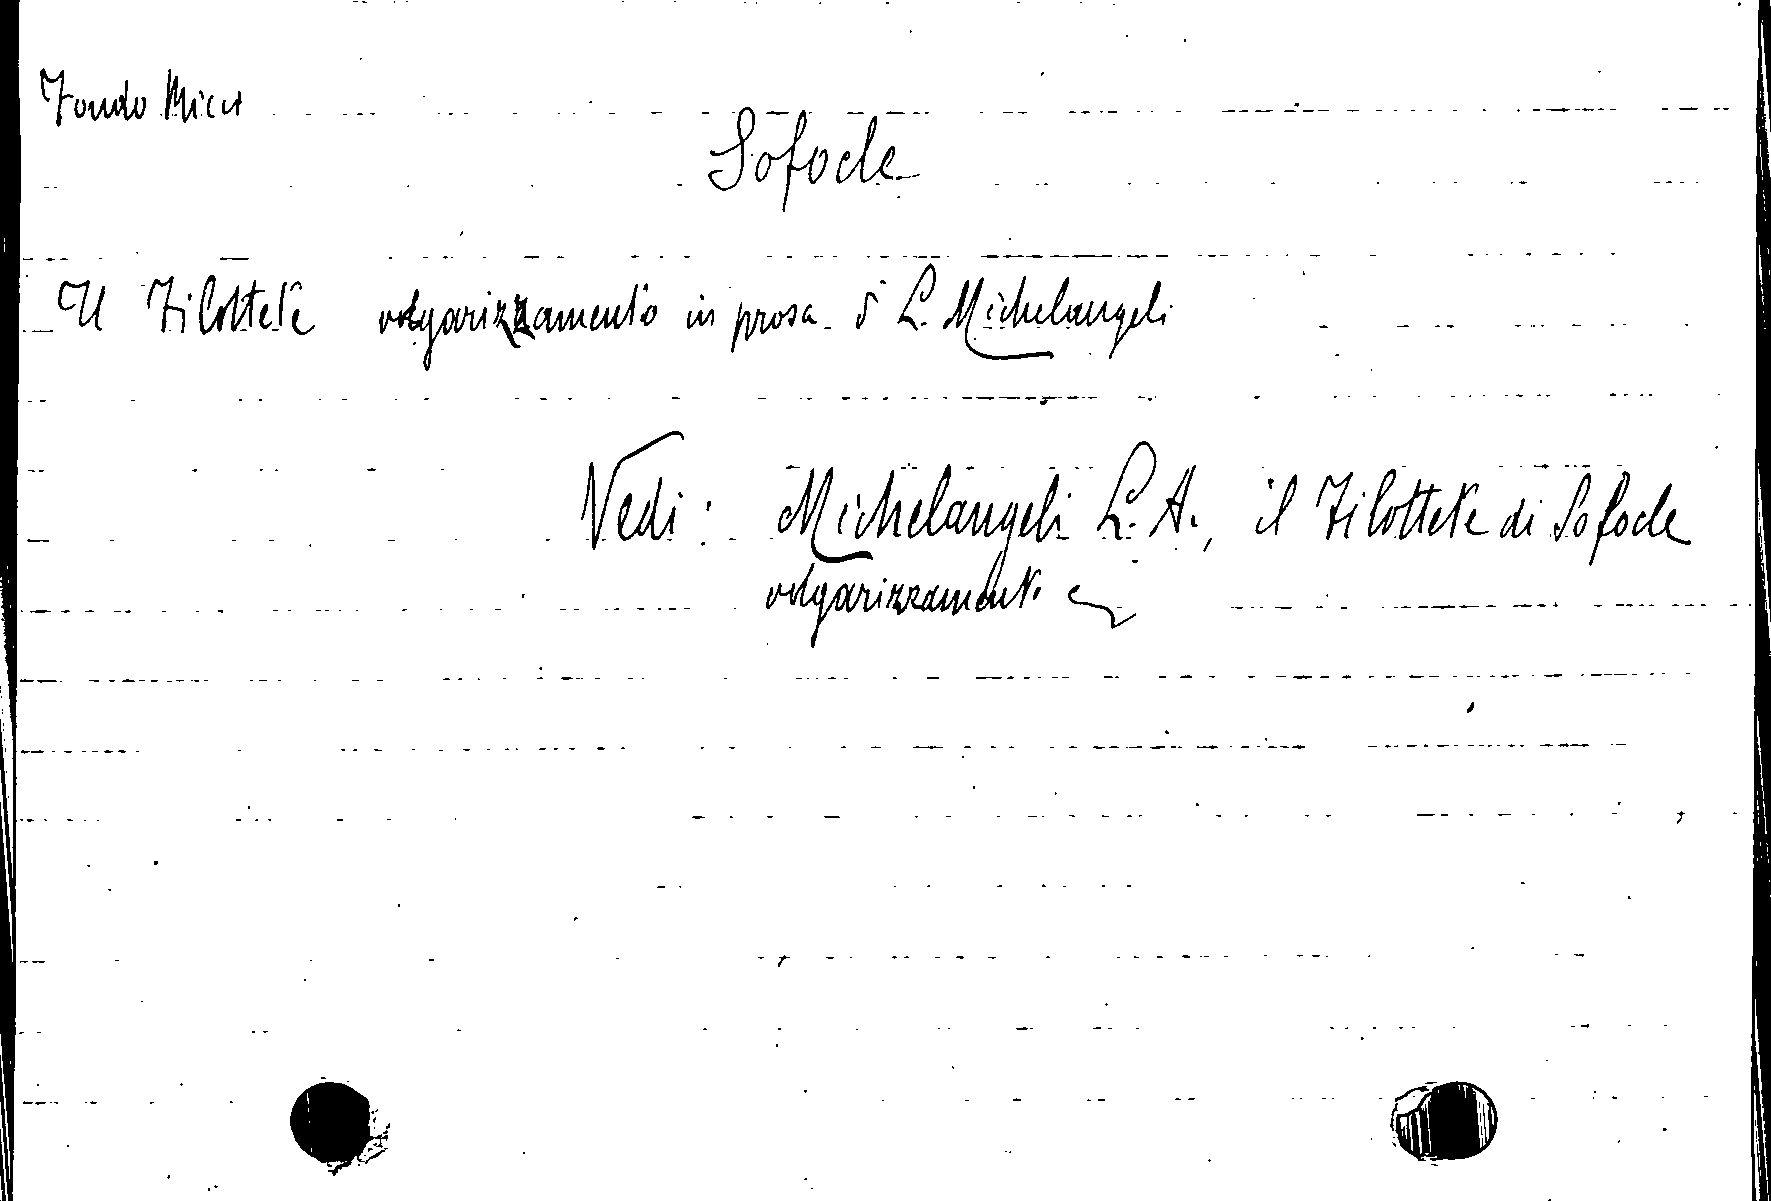 Fondo Micci
Sofocle
Il Filottete volgarizzamento in prosa d L. Michelangeli
Vedi: Michelangeli L. A., il Filottete di Sofocle
volgarizzament.